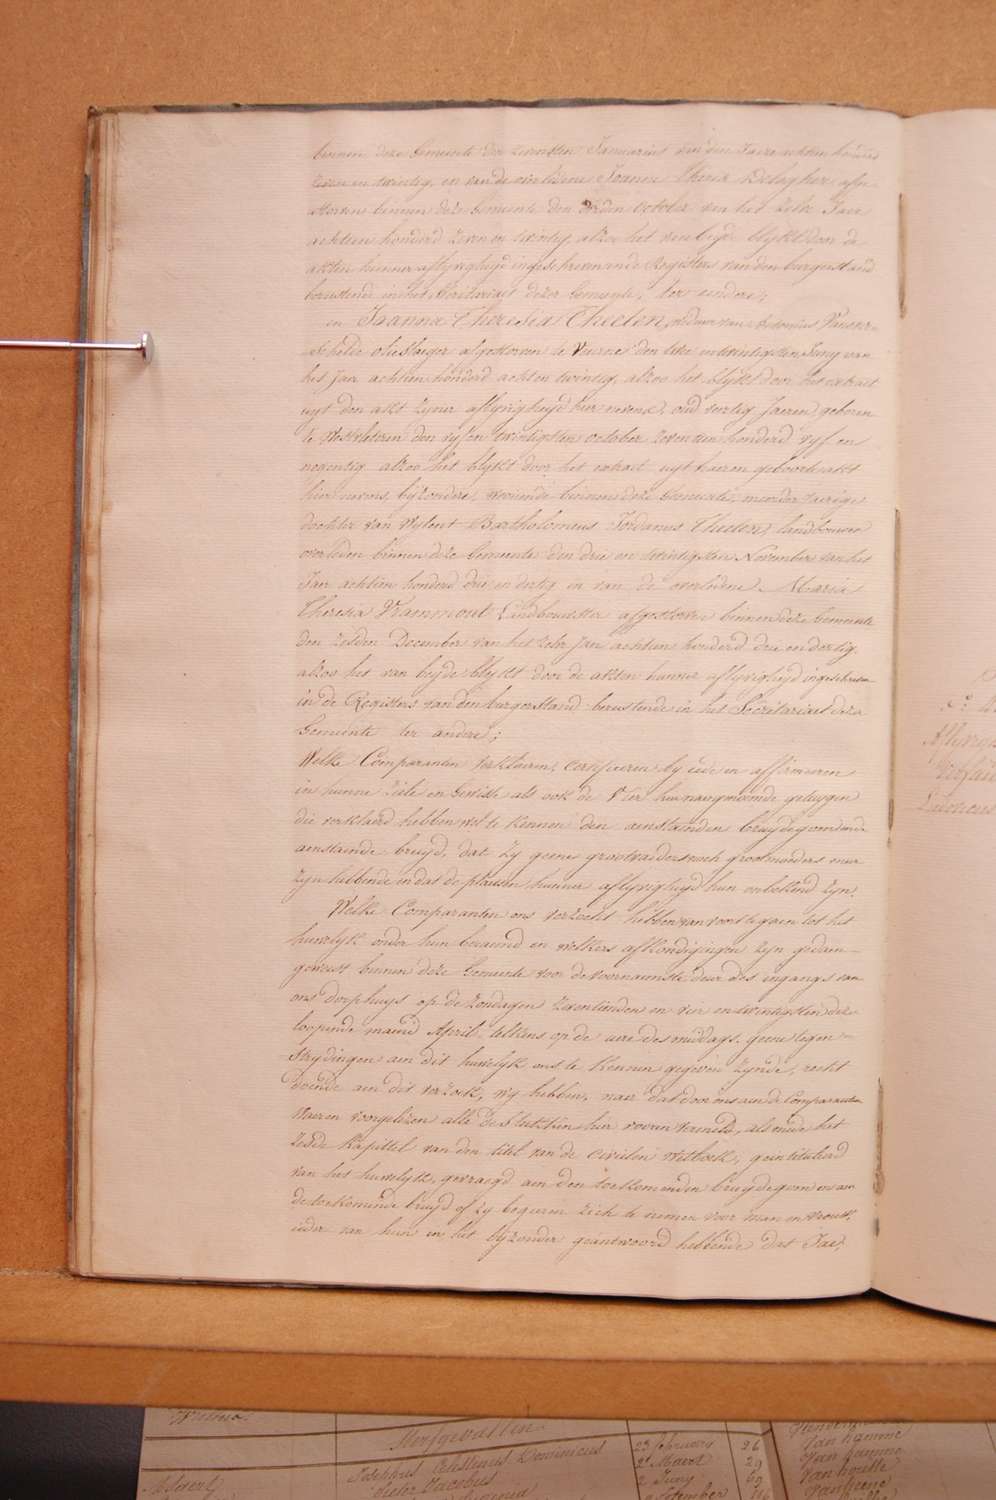 binnen deze Gemeente den zevensten Januarius van den Jaere achtien honderd
zeven en twintig, en van de overledene Joanne Theresia Delaghe afge-
storven binnen deze Gemeente den derden October van het zelve Jaer
achtien honderd zeven en twintig, alzoo het van beyde blykt door de
akten hunner aflyvigheyd ingeschreven in de Registers van den burgerstand
berustende in het Secretariaet dezer Gemeente, ter eendere;
en Joanna Theresia Theeten, weduwe van Antonius Vander-
Schelde olieslager afgestorven te Veurne den een en twintigsten Juny van
het Jaer achtien honderd acht en twintig, alzoo het blykt door het extract
uyt den akt zyner aflyvigheyd hier nevens, oud veertig Jaeren, geboren
te Westvleteren den vyf en twintigsten october zeventien honderd vyf en
negentig alzoo het blykt door het extract uyt haeren geboorteakt
hier nevens, byzondere, woonende binnen deze Gemeente, meerderjaerige
dochter van wylent Bartholomeus Jordanus Theeten, landbouwer
overleden binnen deze Gemeente den drie en twintigsten November van het
Jaer achtien honderd drie en dertig en van de overledene Maria
Theresia Vrammout Landbouwster afgestorven binnen deze Gemeente
den zesden December van het zelve Jaer achtien honderd drie en dertig
alzoo het van beyde blykt door de akten hunner aflyvigheyd ingeschreven
in de Registers van den burgerstand berustende in het Secretariaet dezer
Gemeente ter andere;
Welke Comparanten verklaeren, certifieeren by eede en affirmeeren
in hunne Ziele en Gewisse als ook de Vier hun naergenoemde getuygen
die verklaerd hebben wel te kennen den aenstaenden bruydegom en de
aenstaende bruyd, dat zy geene grootvaeders noch grootmoeders meer
zyn hebbende en dat de plaetsen hunner aflyvigheyd hun onbekend zyn.
Welke Comparanten ons verzocht hebben van voort te gaen tot het
huwelyk onder hun beraemd en welkers afkondigingen zyn gedaen
geweest binnen deze Gemeente voor de voornaemste deur des ingangs van
ons dorphuys op de zondagen zeventienden en vier en twintigsten dezer
loopende maend April telkens op de uere des middags. geene tegen-
strydingen aen dit huwelyk ons te kennen gegeven zynde, recht
doende aen dit verzoek, wy hebben, naer dat door ons aen de Comparanten
waeren voorgelezen alle de stukken hier voren vermeld, als mede het
zesde Kapittel van den titel van de Civielen Wetboek, geintituleerd
van het huwelyk, gevraegd aen den toekomenden bruydegom en aen
de toekomende bruyd of zy begeeren zich te nemen voor man en vrouw,
ieder van hun in het byzonder geantwoord hebbende dat Jae,
Aflyvig
Josephus Celestinus Dominicus
Pieter Jacobus
23 february 26
2 Maert 29
2 Juny 69
September
Van hamme
Van hamme
Van houtte